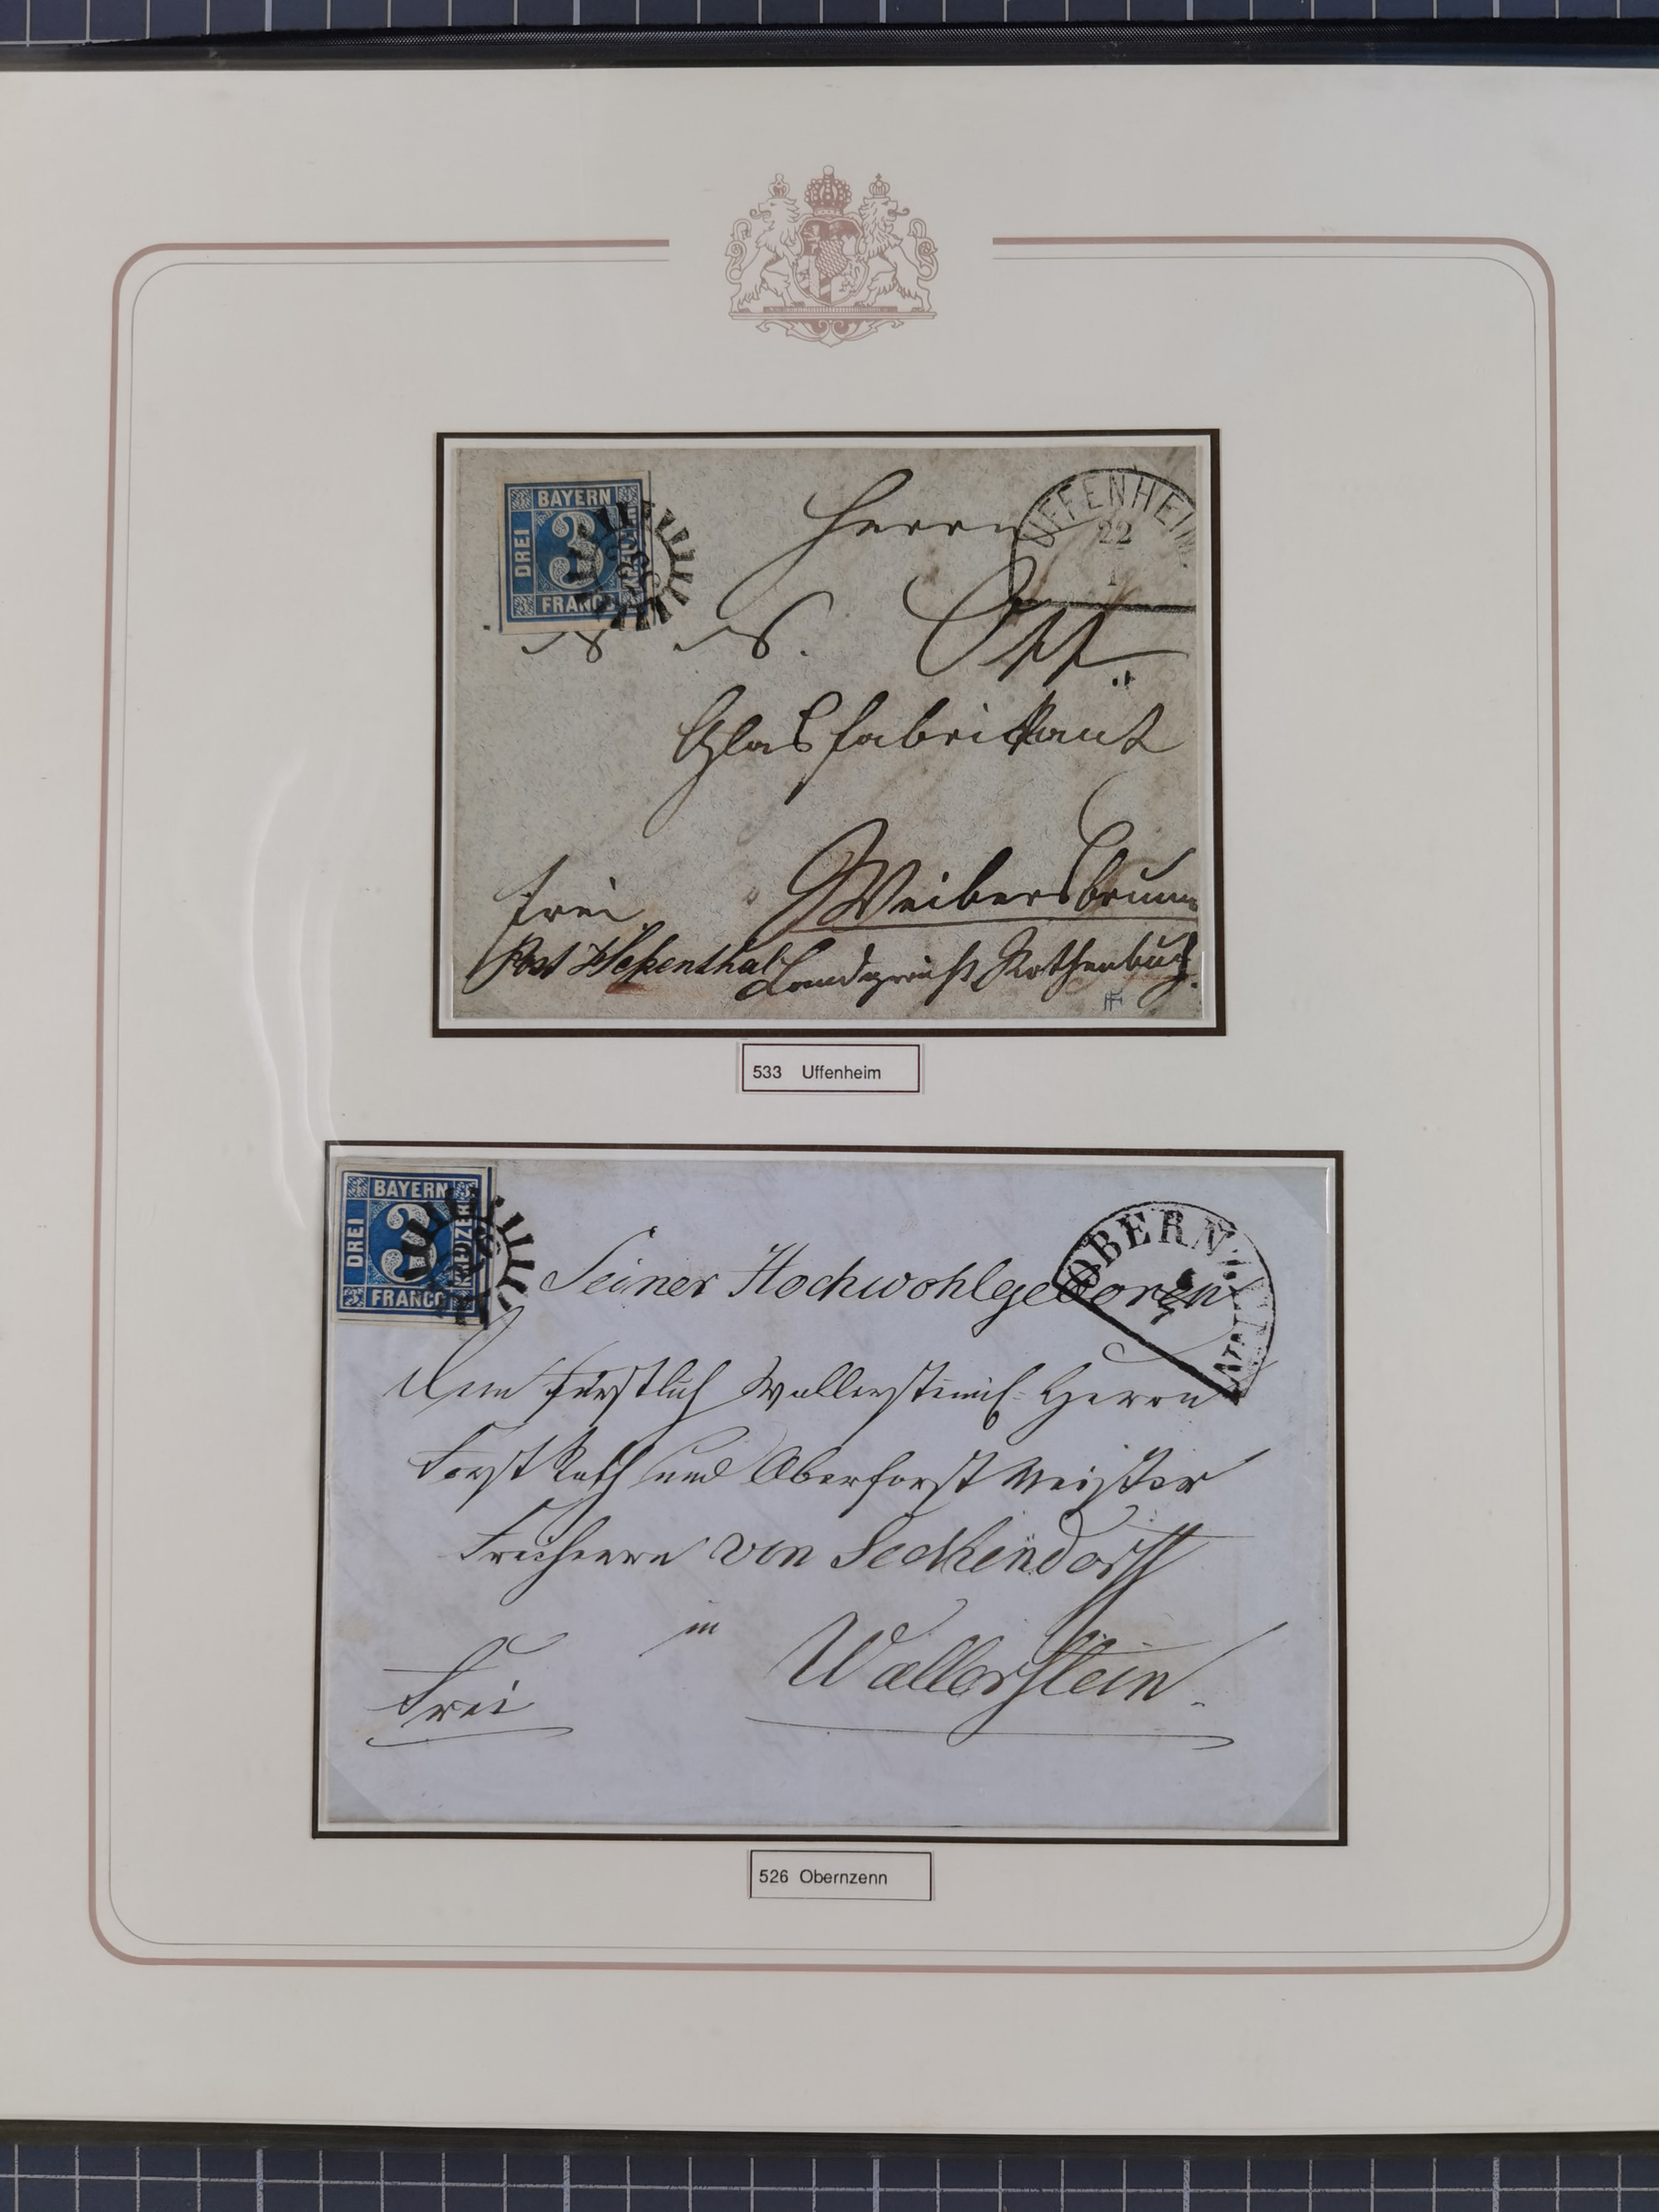 BAYERN
DREI
3
KREUZER
FRANCO
UFFENHEIM
22
1
Herrn
Ott
Glasfabrikant
frei
Weibersbrunn
Post Heßenthal Landgericht Rothenbuch.
533 Uffenheim
BAYERN
DREI
3
KREUZER
FRANCO
OBERNZENN
Seiner Hochwohlgeboren
Dem Fürstlich Wallersteinisch. Herrn
Forst Rath und Oberforst Meister
Freiherrn von Seckendorff
in Wallerstein.
Frei
526 Obernzenn